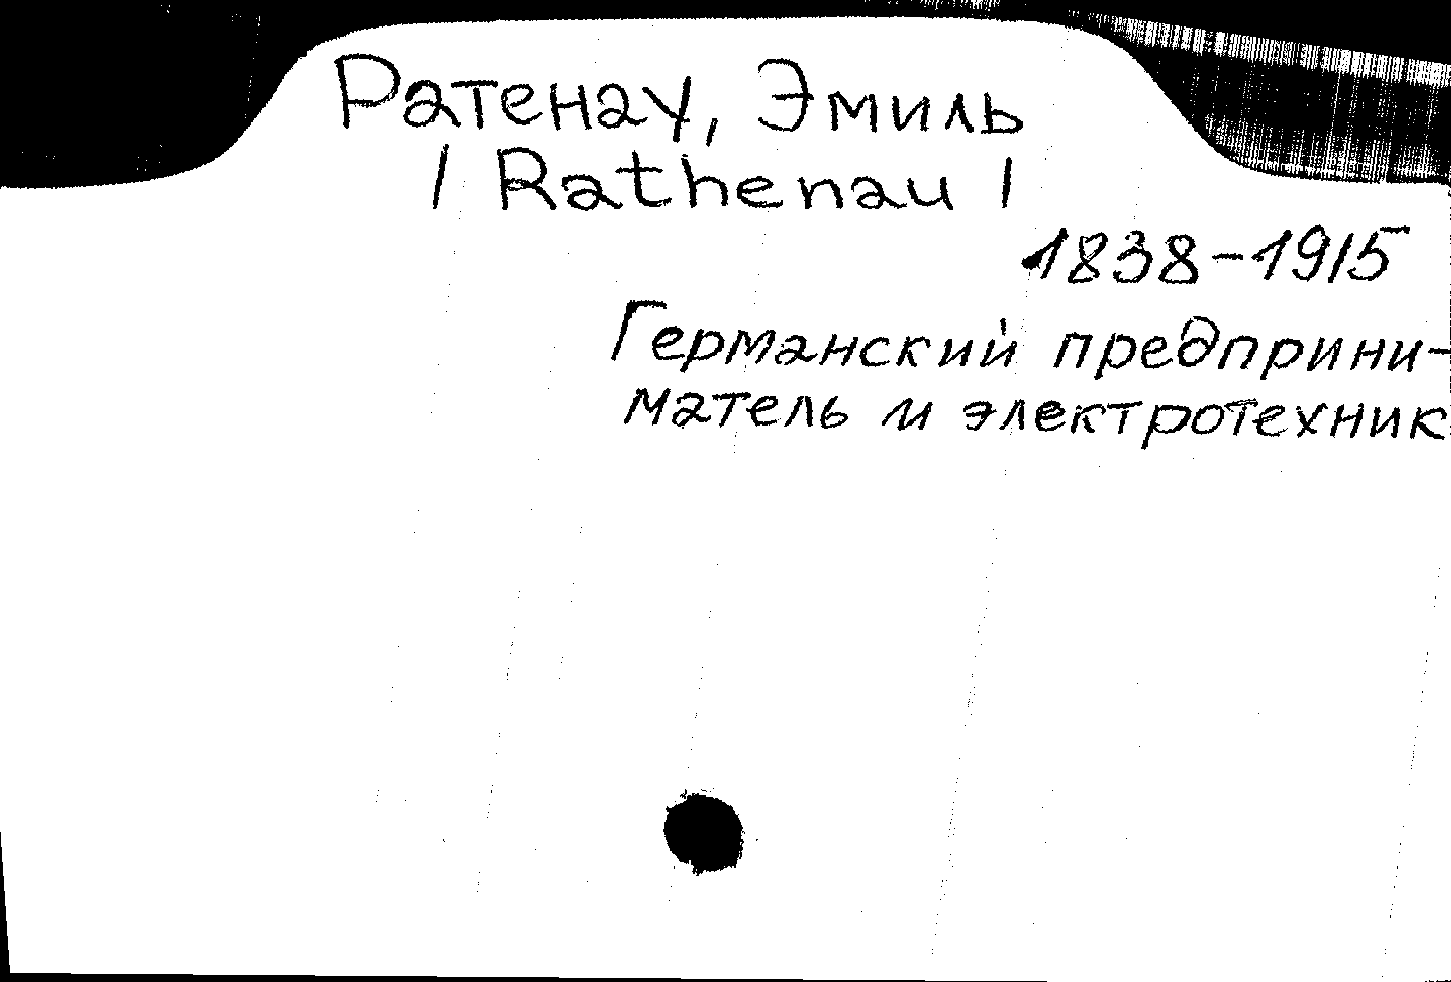 Ратенау, Эмиль
/ Rathenau /
1838-1915
Германский предприни-
матель и электротехник